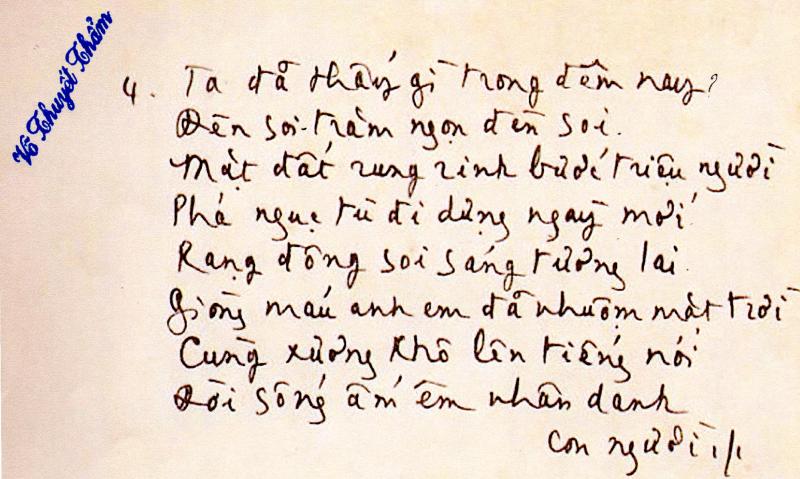 Võ Thuyết Thẩm
4. Ta đã thấy gì trong đêm nay?
Đèn soi-trăm ngọn đèn soi.
Mặt đất rung rinh bước triệu người
Phá ngục tù đi dựng ngày mới
Rạng đông soi sáng tương lai.
Giòng máu anh em đã nhuộm mặt trời
Cùng xương khô lên tiếng nói
Đời sống ấm êm nhân danh
con người ./.